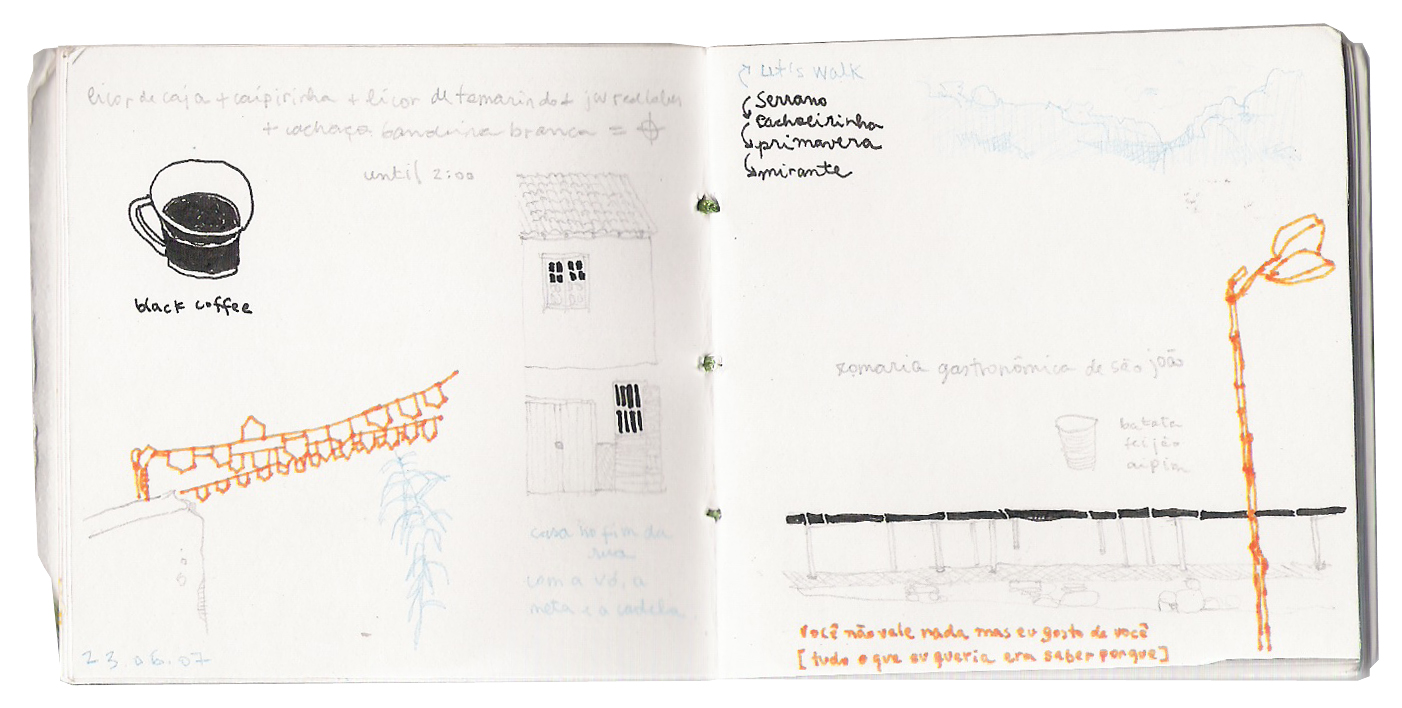 licor de caja + caipirinha + licor de tamarindo +
+ cachaça banduira branca =
until 2:00
black coffee
casa no fim da
rua
com a vó, a
neta e a cadela
23.06.07
Let's walk
serrano
cachoeirinha
primavera
mirante
romaria gastronômica de são joão
batata
feijão
aipim
você não vale nada mas eu gosto de você
[tudo o que eu queria era saber porque]